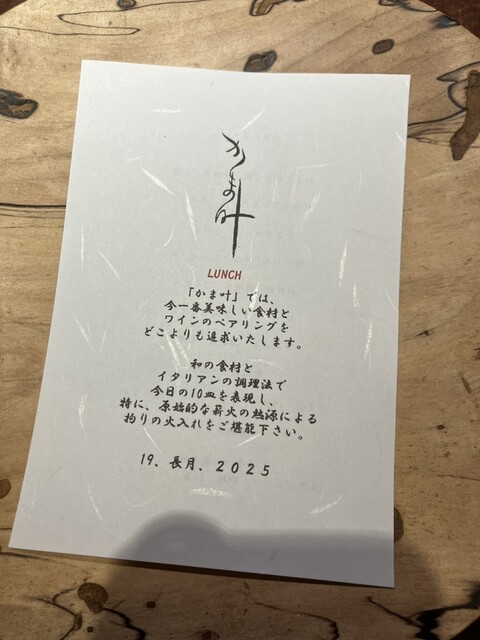 かま叶
LUNCH
「かま叶」では、
今一番美味しい食材と
ワインのペアリングを
どこよりも追求いたします。
和の食材と
イタリアンの調理法で
今日の10皿を表現し、
特に、原始的な薪火の熱源による
拘りの火入れをご堪能下さい。
19. 長月. 2025